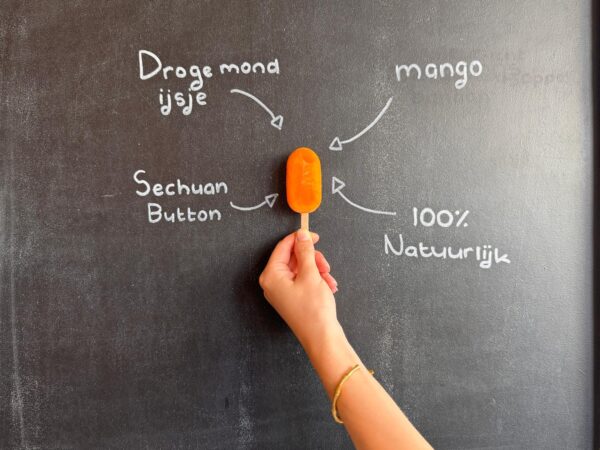 Droge mond
ijsje
mango
Sechuan
Button
100%
Natuurlijk